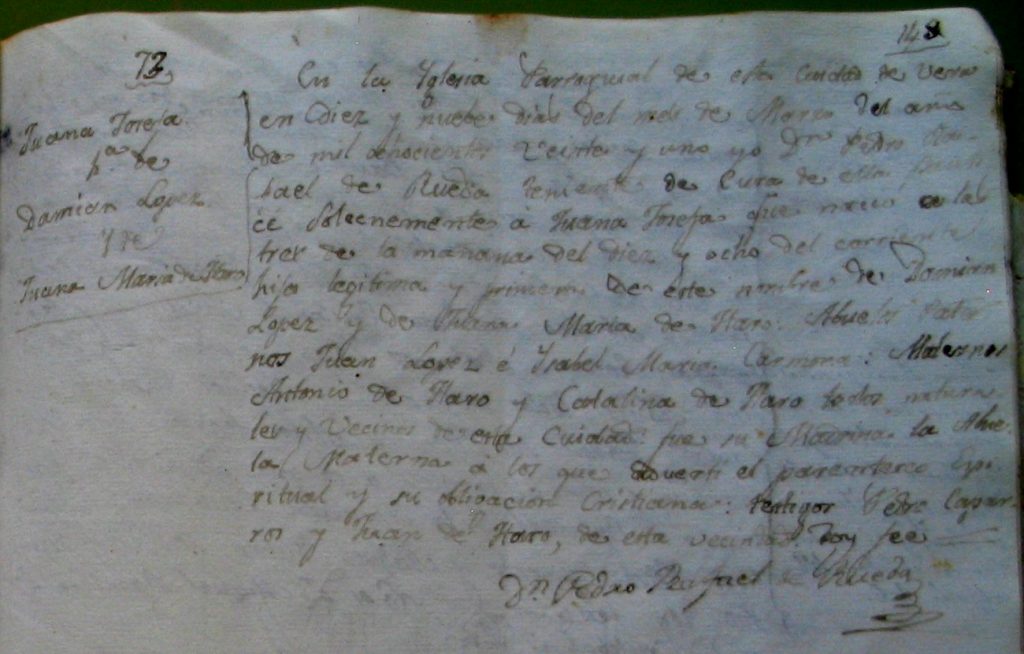 73
148
Juana Josefa
h.ª de
Damian Lopez
y de
Juana Maria de Haro
En la Yglesia Parroquial de esta Cuidad de Vera
en Diez y nuebe dias del mes de Marzo del año
de mil ochocientos veinte y uno yo Dn Pedro Ra-
fael de Rueda teniente de Cura de ella bauti
cé Solecnemente á Juana Josefa que nacio a las
tres de la mañana del diez y ocho del corriente
hija legitima y primera de este nombre de Damian
Lopez y de Juana Maria de Haro: Abuelos Pater
nos Juan Lopez é Ysabel Maria Carmona: Maternos
Antonio de Haro y Catalina de Haro todos natura
les y Vecinos de esta Cuidad: fue su Madrina la Abue
la Materna á los que adverti el parentesco Espi
ritual y su obligacion Cristiana: testigos Pedro Capar-
ros y Juan de Haro, de esta vecindad Doy feé
Dn Pedro Rafael de Rueda